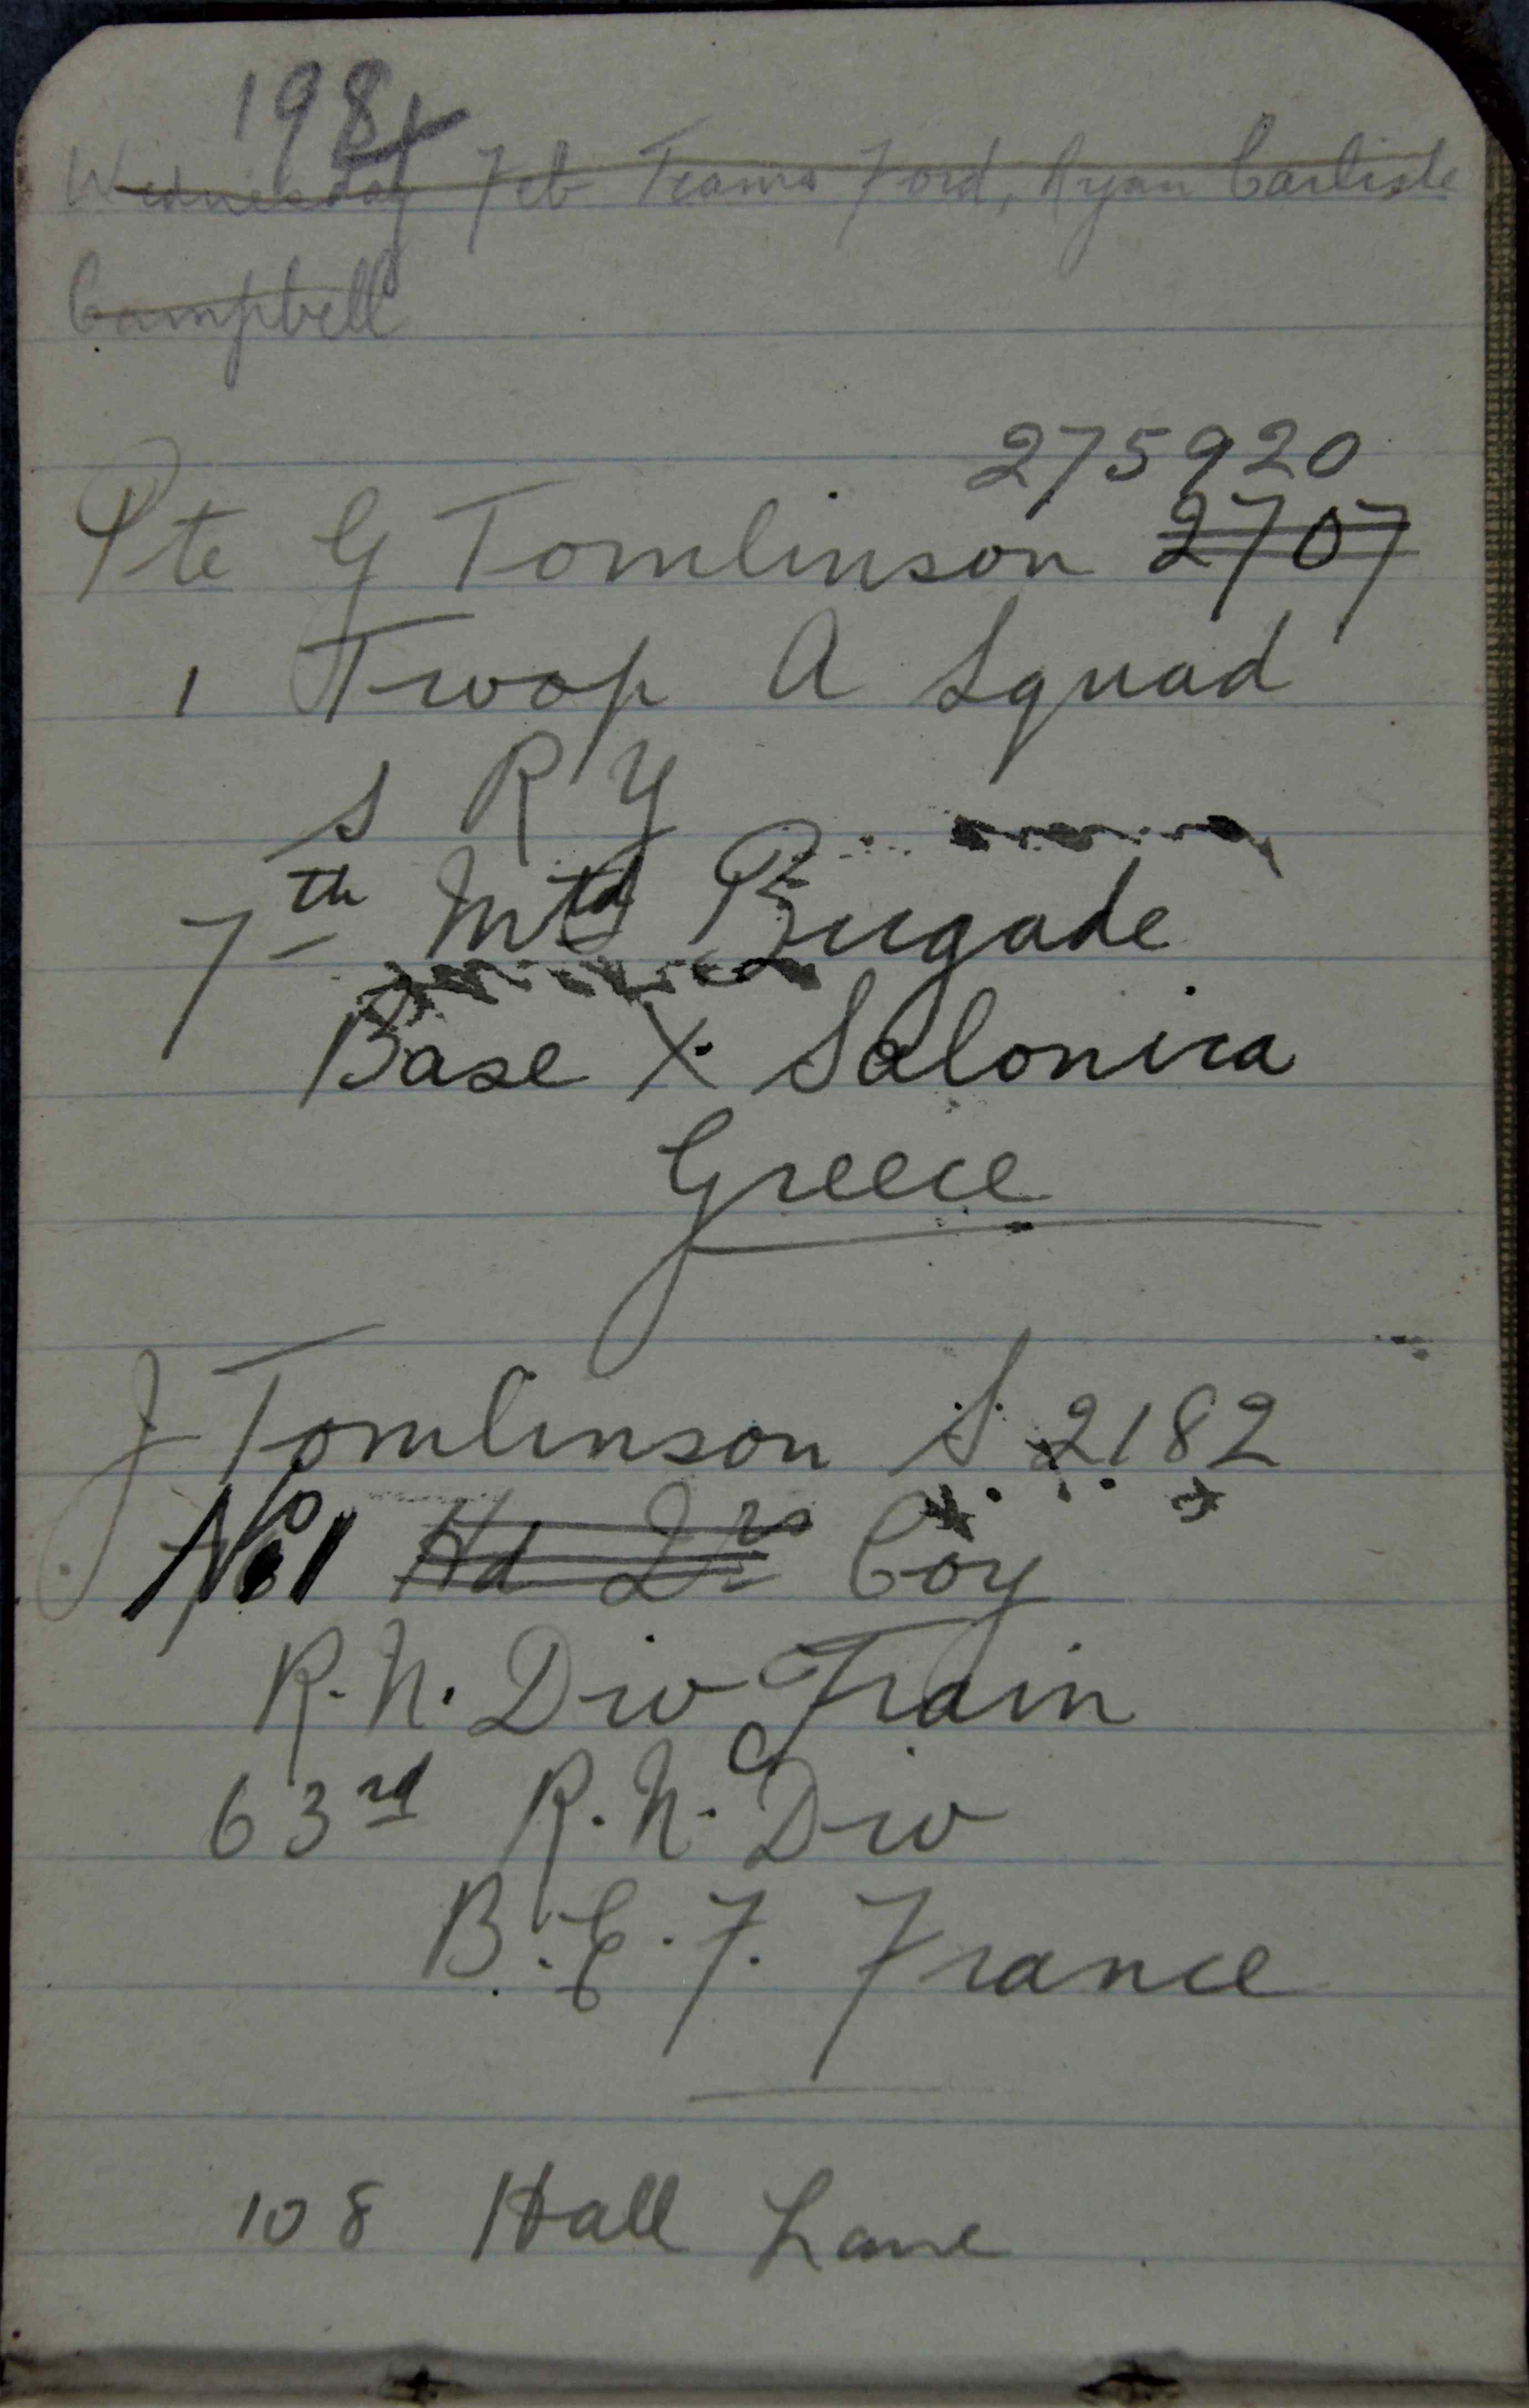 198
Wednesday Feb Teams Ford, Ryan Carlisle
Campbell
275920
Pte G Tomlinson 2707
1 Troop A Squad
S R Y
7th Mtd Brigade
Base X Salonica
Greece
J Tomlinson S 2182
No 1 Hd Qrs Coy
R.N. Div Train
63rd R.N. Div
B.E.F. France
108 Hall Lane